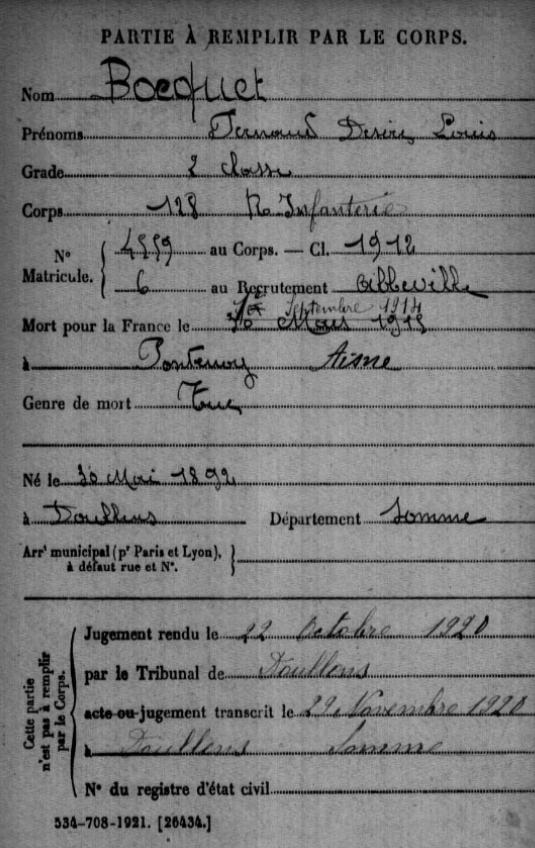 PARTIE À REMPLIR PAR LE CORPS.
Nom Bocquet
Prénoms Fernand Desire, Louis
Grade 2 classe
Corps 128 R. Infanterie
N° Matricule. 4559 au Corps. — Cl. 1912
6 au Recrutement Abbeville
Septembre 1914
Mort pour la France le Mars 1915
à Fontenoy Aisne
Genre de mort Tué
Né le 30 Mai 1892
à Doullens Département Somme
Arrt municipal (pr Paris et Lyon),
à défaut rue et N°.
Cette partie n'est pas à remplir par le Corps.
Jugement rendu le 22 Octobre 1920
par le Tribunal de Doullens
acte ou jugement transcrit le 29 Novembre 1920
à Doullens Somme
N° du registre d'état civil
534-708-1921. [26434.]